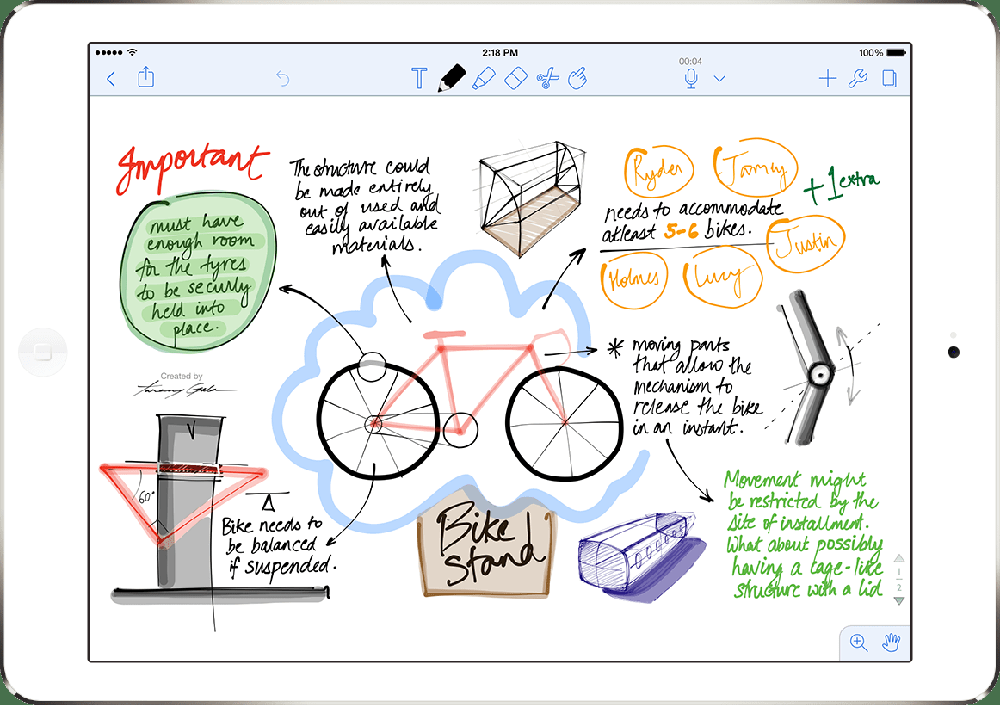 2:18 PM
100%
00:04
T
Important
must have
enough room
for the tyres
to be securly
held into
place.
The structure could
be made entirely
out of used and
easily available
materials.
Ryder
Tommy
+1 extra
needs to accommodate
atleast 5-6 bikes.
Justin
Holmes
Lucy
* moving parts
that allow the
mechanism to
release the bike
in an instant.
Created by
60°
Bike needs to
be balanced
if suspended.
Bike
stand
Movement might
be restricted by the
site of installment.
What about possibly
having a cage-like
structure with a lid
1
2